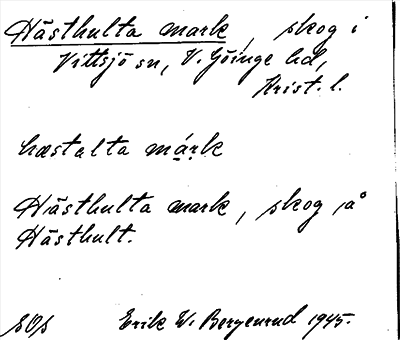 Hästhulta mark, skog i
Vittsjö sn, V. Göinge hd,
Krist. l.
hæstalta márk
Hästhulta mark, skog på
Hästhult.
Erik W. Bergenrud 1945.